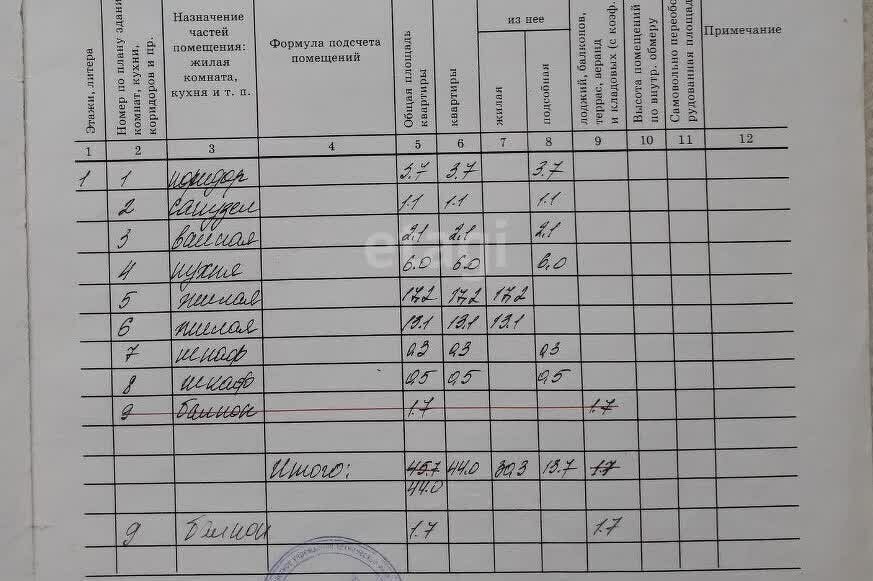 Этажи, литера | Номер по плану здания комнат, кухни, коридоров и пр. | Назначение частей помещения: жилая комната, кухня и т. п. | Формула подсчета помещений | Общая площадь квартиры | квартиры | из нее | жилая | подсобная | лоджий, балконов, террас, веранд и кладовых (с коэф. | Высота помещений по внутр. обмеру | Самовольно переоборудованная площадь | Примечание
1 2 3 4 5 6 7 8 9 10 11 12
1 1 коридор 3.7 3.7 3.7
2 санузел 1.1 1.1 1.1
3 ванная 2.1 2.1 2.1
4 кухня 6.0 6.0 6.0
5 жилая 17,2 17,2 17,2
6 жилая 13.1 13.1 13.1
7 шкаф 0,3 0,3 0,3
8 шкаф 0,5 0,5 0,5
9 балкон 1.7 1.7
Итого: 45.7 44.0 30,3 13.7 1.7
44.0
9 балкон 1.7 1.7
etagi